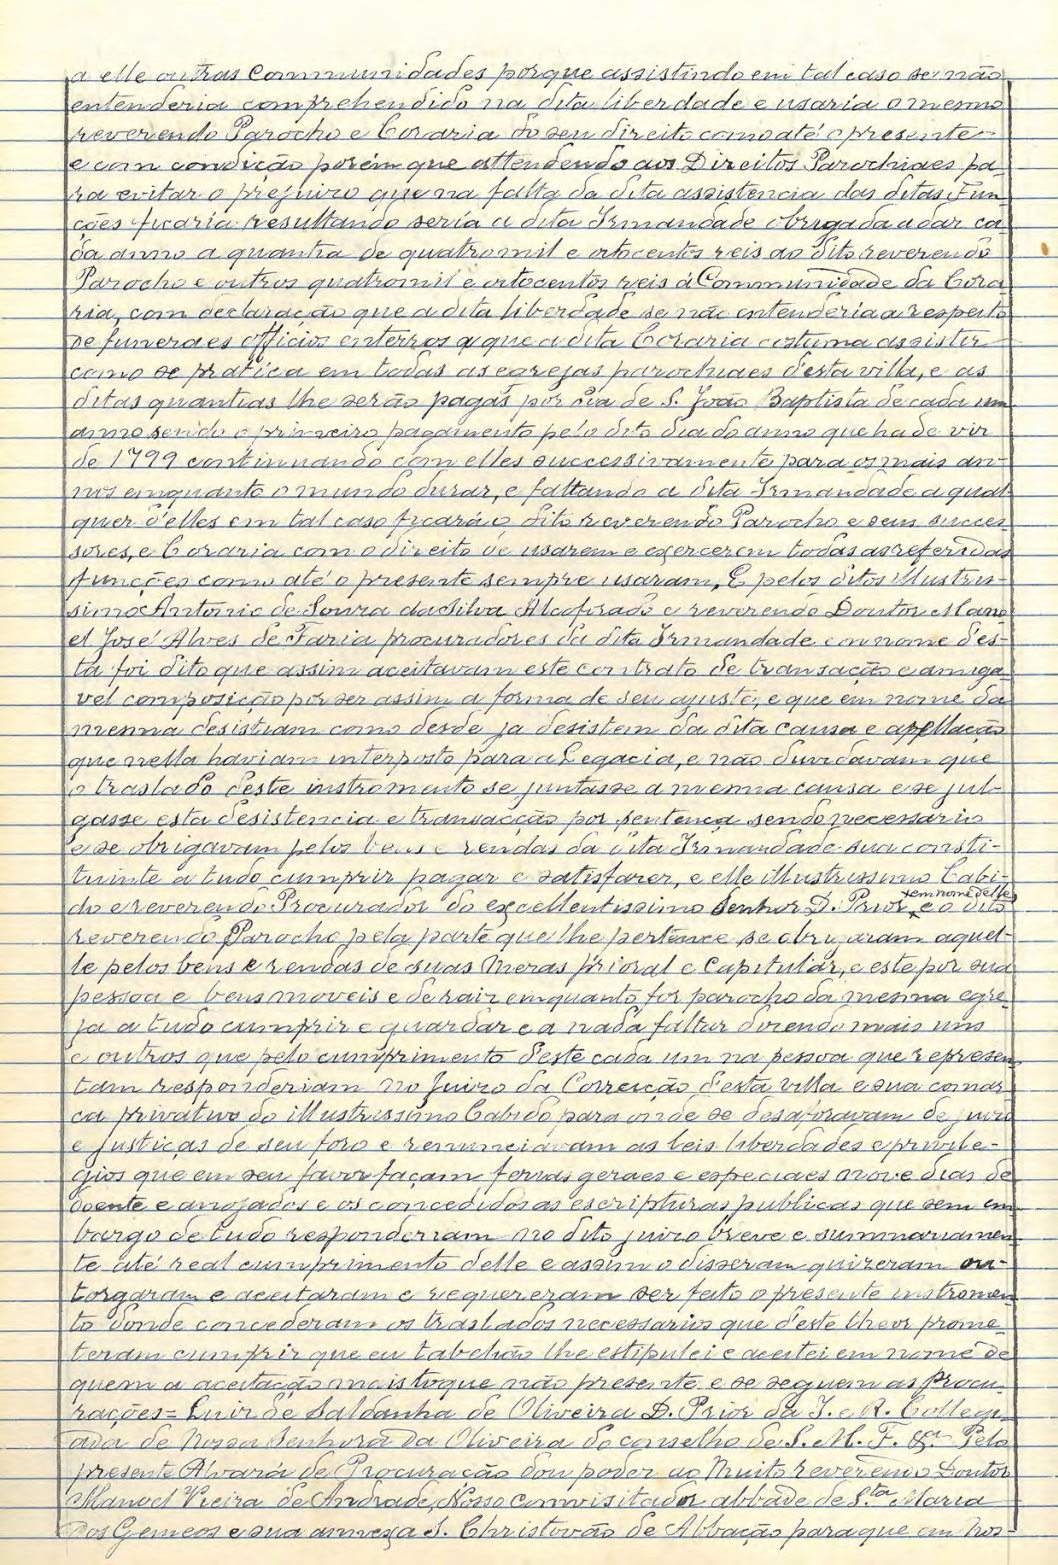 a elle outras Communidades porque assistindo em tal caso se não
entenderia comprehendido na dita liberdade e usaria o mesmo
reverendo Parocho e Coraria do seu direito como até o presente
e com condição porém que attendendo aos Direitos Parochiaes pa-
ra evitar o prejuizo que na falta da dita assistencia das ditas Fun-
ções ficaria resultando seria a dita Irmandade obrigada a dar ca-
da anno a quantia de quatro mil e oitocentos reis ao dito reverendo
Parocho e outros quatro mil e oitocentos reis á Communidade da Cora
ria, com declaração que a dita liberdade se não entenderia a respeito
de funeraes officios enterros a que a dita Coraria costuma assistir
como se pratica em todas as egrejas parochiaes d'esta villa, e as
ditas quantias lhe serão pagas por dia de S. João Baptista de cada um
anno sendo o primeiro pagamento pelo dito dia do anno que ha de vir
de 1799 continuando com elles successivamente para os mais an-
nos emquanto o mundo durar, e faltando a dita Irmandade a qual-
quer d'elles em tal caso ficará o dito reverendo Parocho e seus succes-
sores, e Coraria com o direito de usarem e exercerem todas as referidas
funcções como até o presente sempre usaram, E pelos ditos Illustris-
simo Antonio de Souza da Silva Alcoforado e reverendo Doutor Mano
el José Alves de Faria procuradores da dita Irmandade em nome d'es-
ta foi dito que assim aceitavam este contrato de transação e amiga-
vel composição por ser assim a forma de seu ajuste, e que em nome da
mesma desistiam como desde ja desistem da dita causa e apellação
que nella haviam interposto para a Legacia, e não duvidavam que
o traslado d'este instromento se juntasse a mesma causa e se jul-
gasse esta desistencia e transacção por sentença sendo necessario
e se obrigavam pelos bens e rendas da dita Irmandade sua consti-
tuinte a tudo cumprir pagar e satisfazer, e elle illustrissimo Cabi-
do e reverendo Procurador do excellentissimo Senhor D. Prior em nome delles e o dito
reverendo Parocho pela parte que lhe pertence se obrigaram aquel-
le pelos bens e rendas de suas Mezas prioral e Capitular, e este por sua
pessoa e bens moveis e de raiz emquanto for parocho da mesma egre-
ja a tudo cumprir e guardar e a nada faltar dizendo mais uns
e outros que pelo cumprimento d'este cada um na pessoa que represen-
tam responderiam no Juizo da Correição d'esta villa e sua comar
ca privativo do illustrissimo Cabido para onde se desaforavam de juizo
e justiças de seu foro e renunciavam as leis liberdades e privile-
gios que em seu favor façam ferias geraes e especiaes nove dias de
doente e anojados e os concedidos as escripturas publicas que sem em-
bargo de tudo responderiam no dito juizo breve e summariamen-
te até real cumprimento delle e assim o disseram quizeram ou-
torgaram e aceitaram e requereram ser feito o presente instromen-
to donde concederam os traslados necessarios que d'este theor prome-
teram cumprir que eu tabelião lhe estipulei e aceitei em nome de
quem a aceitação mais toque não presente e se seguem as Procu-
rações = Luiz de Saldanha de Oliveira D. Prior da I. e R. Collegi-
ada de Nossa Senhora da Oliveira do conselho de S. M. F. &ª Pelo
presente Alvará de Procuração dou poder ao Muito reverendo Doutor
Manoel Vieira de Andrade, Nosso convisitador abbade de Sta Maria
dos Gemeos e sua annexa S. Christovão de Abbação para que em nos-